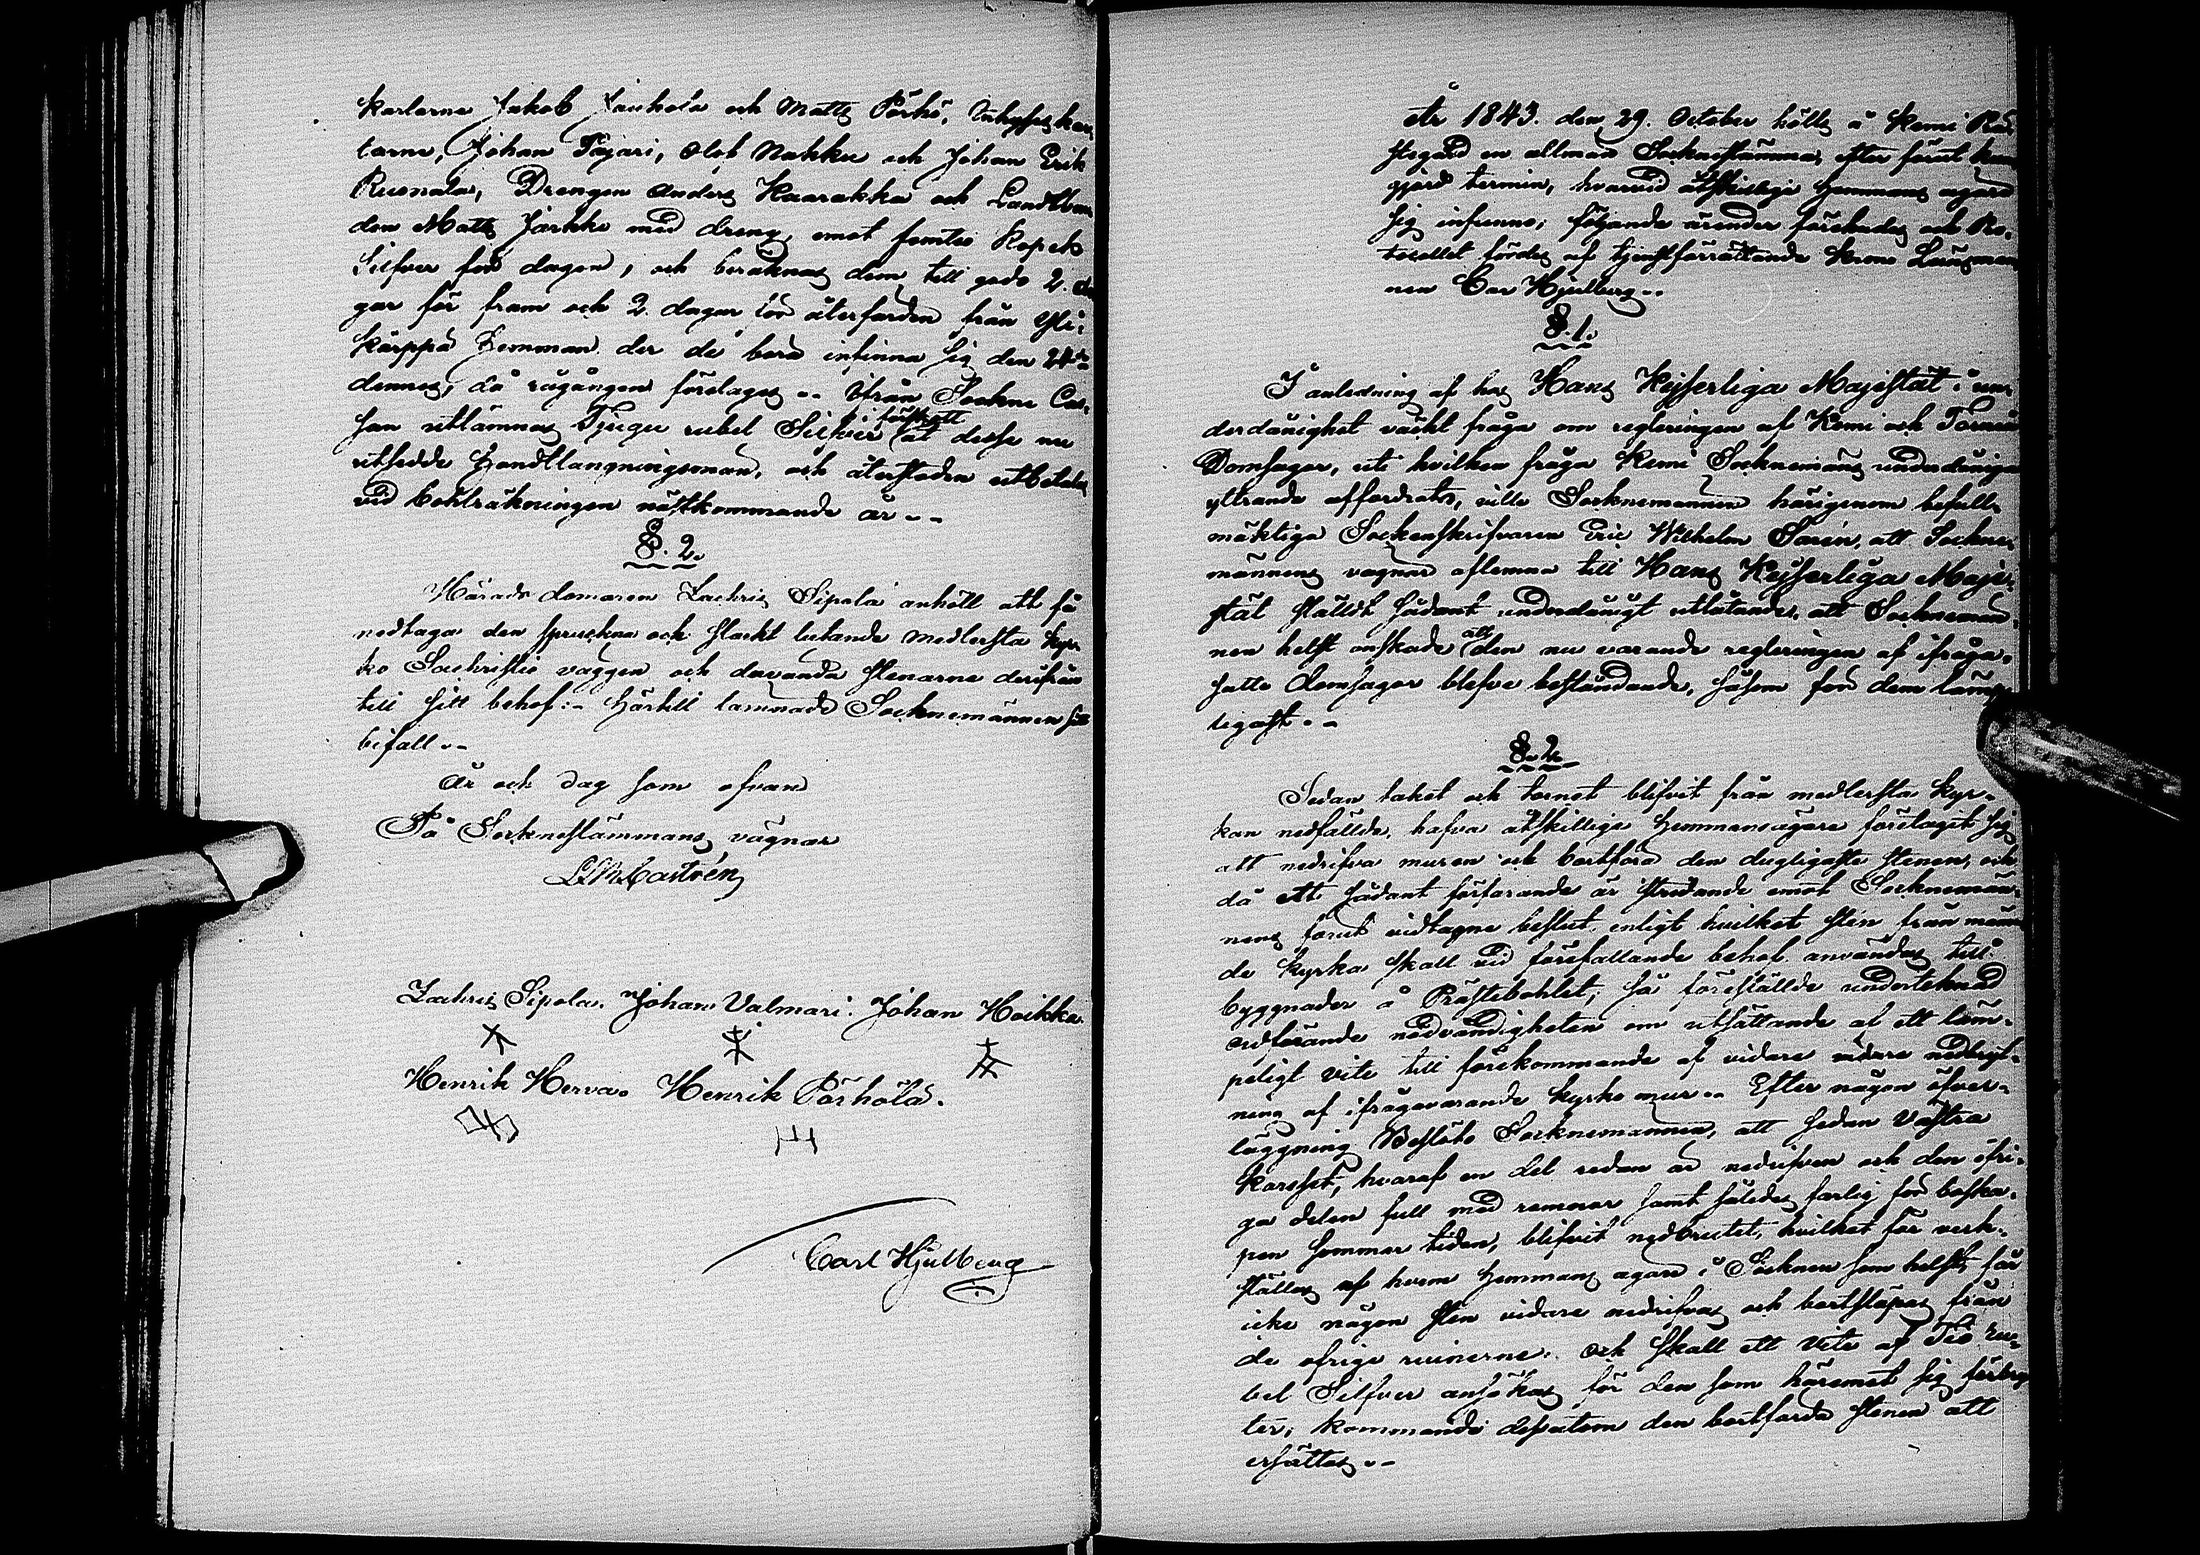 karlarne Jakob Jaukola och Matts Pörhö, Inhyses kar-
larne, Johan Tajari, Olof Nakku och Johan Erik
Rusnala, Drengen Anders Kaarakka och Landtbon-
den Matts Jarkko med dreng, emot femtio Kopek
Silfver för dagen, och beräknas dem till godo 2. da-
gar för fram och 2. dagar för återfärden från Yli-
kärppä Hemman der de böra infinna sig den 24de
dennes, då rågången företages.. Från Sockne Cas-
san utlämnas Tjugu rubel Silfver i förskott åt desse nu
utsedde Handtlangningsmän, och återstoden utbetalas
vid Bohlräkningen nästkommande år..
§. 2.
Härads domaren Zachris Sipola anhöll att få
nedtaga den spruckna och starkt lutande medlersta kyr-
ko Sachristie väggen och använda stenarne derifrån
till sitt behof:- Härtill lämnade Socknemännen sitt
bifall..
År och dag som ofvan
På Socknestämmans vägnar
Castrén
Zachris Sipola. Johan Valmari. Johan Hoikka.
Henrik Herva. Henrik Pörhölä.
Carl Hjulberg
År 1843. den 29. October hölls å Kemi Prä-
stegård en allmän Socknestämma, efter förut kun-
gjord termin, hvarvid åtskillige Hemmans ägare
sig infunno; följande ärender förehades och Pro-
tocollet fördes af tjenstförrättande Krono Länsman-
nen Carl Hjulberg..
§. 1.
I anledning af hos Hans Kejserliga Majestät i un-
derdånighet väckt fråga om regleringen af Kemi och Torneå
Domsagor, uti hvilken fråga Kemi Socknemäns underdåniga
yttrande affordrats, ville Socknemännen härigenom befull-
mäktiga Sockenskrifvaren Eric Wilhelm Sarén, att Sockne-
männens vägnar aflemna till Hans Kejserliga Maje-
stät ställdt sådant underdånigt utlåtande, att Socknemän-
nen helst önskade att den nu varande regleringen af ifråga-
satte domsagor blefve beståndande, såsom för dem lämp-
ligast..
§. 2.
Sedan taket och tornet blifvit från medlersta kyr-
kan nedfällde, hafva åtskillige Hemmansägare företagit sig
att nedrifva muren och bortföra den dugligaste stenen, och
då ett sådant förfarande är stridande emot Socknemän-
nens förut vidtagne beslut, enligt hvilket sten från nämn-
de kyrka skall vid förefallande behof användas till
byggnader å Prästebohlet; så föreställde undertecknad
ordförande nödvändigheten om utsättande af ett läm-
peligt vite till förekommande af vidare vidare nedbryt-
ning af ifrågavarande kyrko mur.. Efter någon öfver-
läggning Beslöto Socknemännen, att sedan Västra
Korsset, hvaraf en del redan är nedrifven och den öfri-
ga delen full med remnor samt således farlig för boska-
pen sommar tiden, blifvit nedbrutet, hvilket får verk-
ställas af hvem Hemmans ägare i Socknen som helst, får
icke någon sten vidare nedrifvas och bortsläpas från
de öfrige ruinerne: och skall ett Vite af Tio ru-
bel Silfver ansökas för den som häremot sig förbry-
ter; kommande dessutom den bortförda stenen att
ersättas..